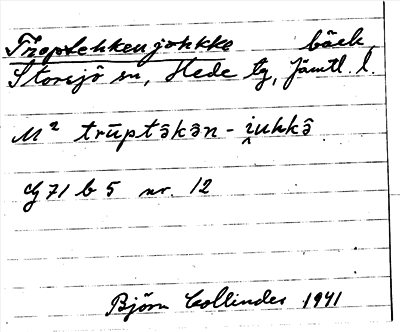 Truoptehkenjohkke bäck,
Storsjö sn, Hede tg, Jämtl. l.
M² trūptǝ̄kǝn-i̯uhkǝ̂
Ɋ 71 b 5 nr. 12
Björn Collinder 1941